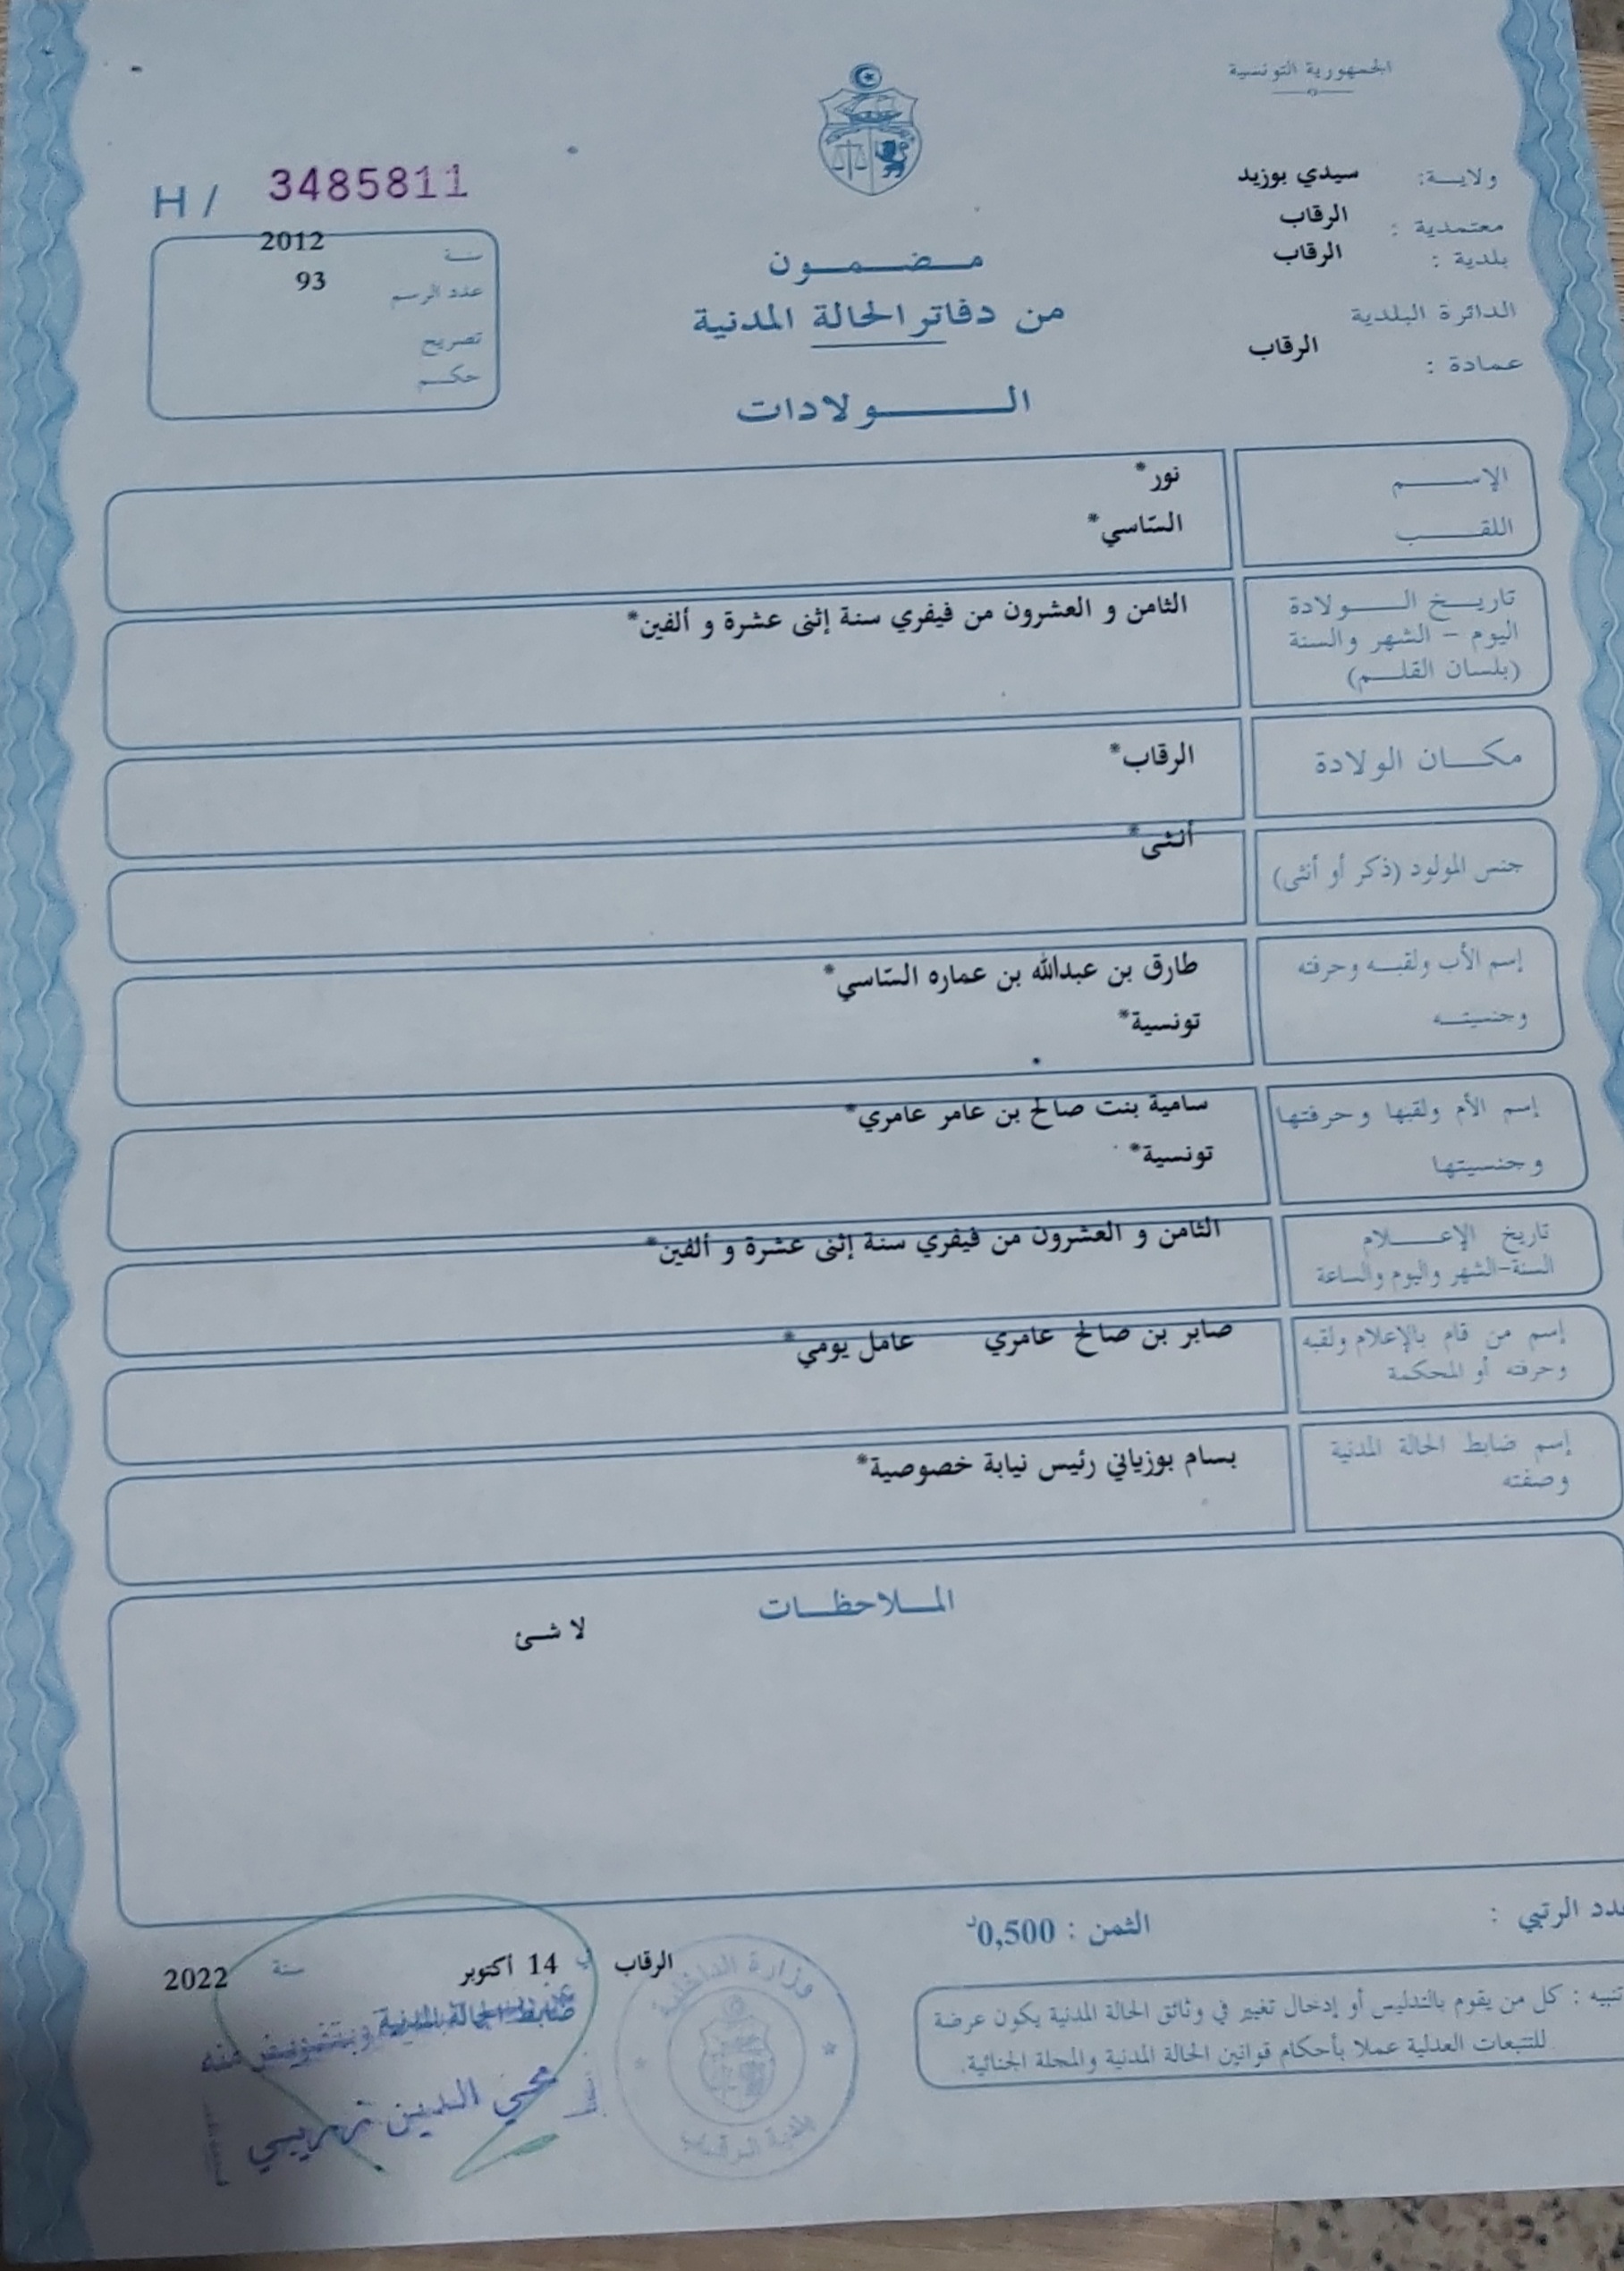 الجمهورية التونسية
ولايـة: سيدي بوزيد
معتمدية : الرقاب
بلدية : الرقاب
الدائرة البلدية
عمادة : الرقاب
H / 3485811
سنـة 2012
عدد الرسم 93
تصريح
حكـم
مـضـمـون
من دفاتر الحالة المدنية
الـولادات
الإسـم نور*
اللقـب السّاسي*
تاريـخ الـولادة الثامن و العشرون من فيفري سنة إثنى عشرة و ألفين*
اليوم - الشهر والسنة
(بلسان القلـم)
مكـان الولادة الرقاب*
جنس المولود (ذكر أو أنثى) أنثى*
إسم الأب ولقبـه وحرفته طارق بن عبدالله بن عماره السّاسي*
وجنسيتـه تونسية*
إسم الأم ولقبها وحرفتها سامية بنت صالح بن عامر عامري*
وجنسيتها تونسية*
تاريخ الإعـلام الثامن و العشرون من فيفري سنة إثنى عشرة و ألفين*
السنة-الشهر واليوم والساعة
إسم من قام بالإعلام ولقبه صابر بن صالح عامري عامل يومي*
وحرفته أو المحكمة
إسم ضابط الحالة المدنية بسام بوزياني رئيس نيابة خصوصية*
وصفته
المـلاحظـات
لا شـئ
عدد الرتبي :
الثمن : 0,500د
الرقاب في 14 أكتوبر سنة 2022
تنبيه : كل من يقوم بالتدليس أو إدخال تغيير في وثائق الحالة المدنية يكون عرضة
للتتبعات العدلية عملا بأحكام قوانين الحالة المدنية والمجلة الجنائية.
ضابط الحالة المدنية وبتفويض منه
محي الدين
وزارة الداخلية
بلدية الرقاب